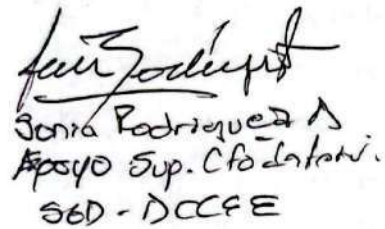 Sonia Rodriguez A
Apoyo Sup. Cto Interv.
SED - DCCEE